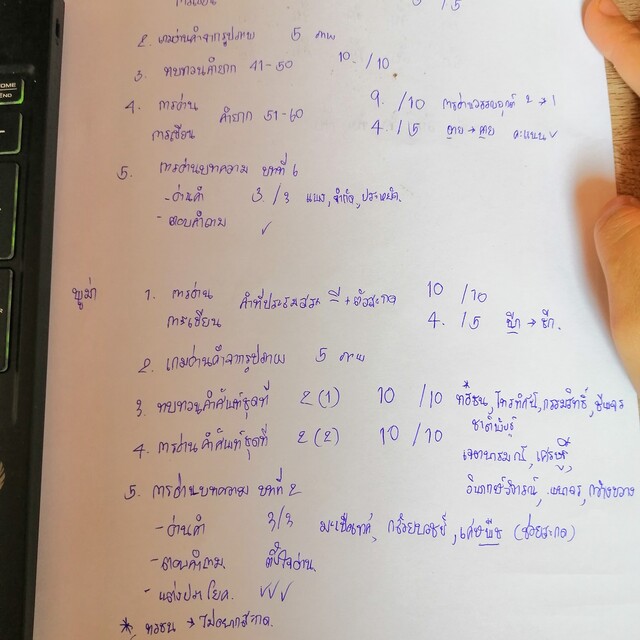 การเขียน 5 /5
2. เกมอ่านคำจากรูปภาพ 5 ภาพ
3. ทบทวนคำยาก 41-50 10. /10
4. การอ่าน คำยาก 51-60 9. /10 2 → 1
การเขียน 4. /5 คะแนน ✓
5. การอ่านบทความ บทที่ 6
- อ่านคำ 3. /3 แพง, จำกัด, ประหยัด.
- ตอบคำถาม ✓
พูม่า 1. การอ่าน คำที่ประสมสระ อี + ตัวสะกด 10 /10
การเขียน 4. /5
2. เกมอ่านคำจากรูปภาพ 5 ภาพ
3. ทบทวนคำศัพท์ชุดที่ 2 (1) 10 /10 ทวีชน, โทรทัศน์, กรรมสิทธิ์,
ชาติพันธุ์
4. การอ่านคำศัพท์ชุดที่ 2 (2) 10 /10 เจตนารมณ์, เศรษฐี,
5. การอ่านบทความ บทที่ 2 วิพากษ์วิจารณ์, กว้างขวาง
- อ่านคำ 3/3 มะเขือเทศ, กล้วยบวชชี, เศษพืช (ช่วยสะกด)
- ตอบคำถาม ตั้งใจอ่าน.
- แต่งประโยค. ✓✓✓
* ทวีชน → ไม่ออกสะกด.